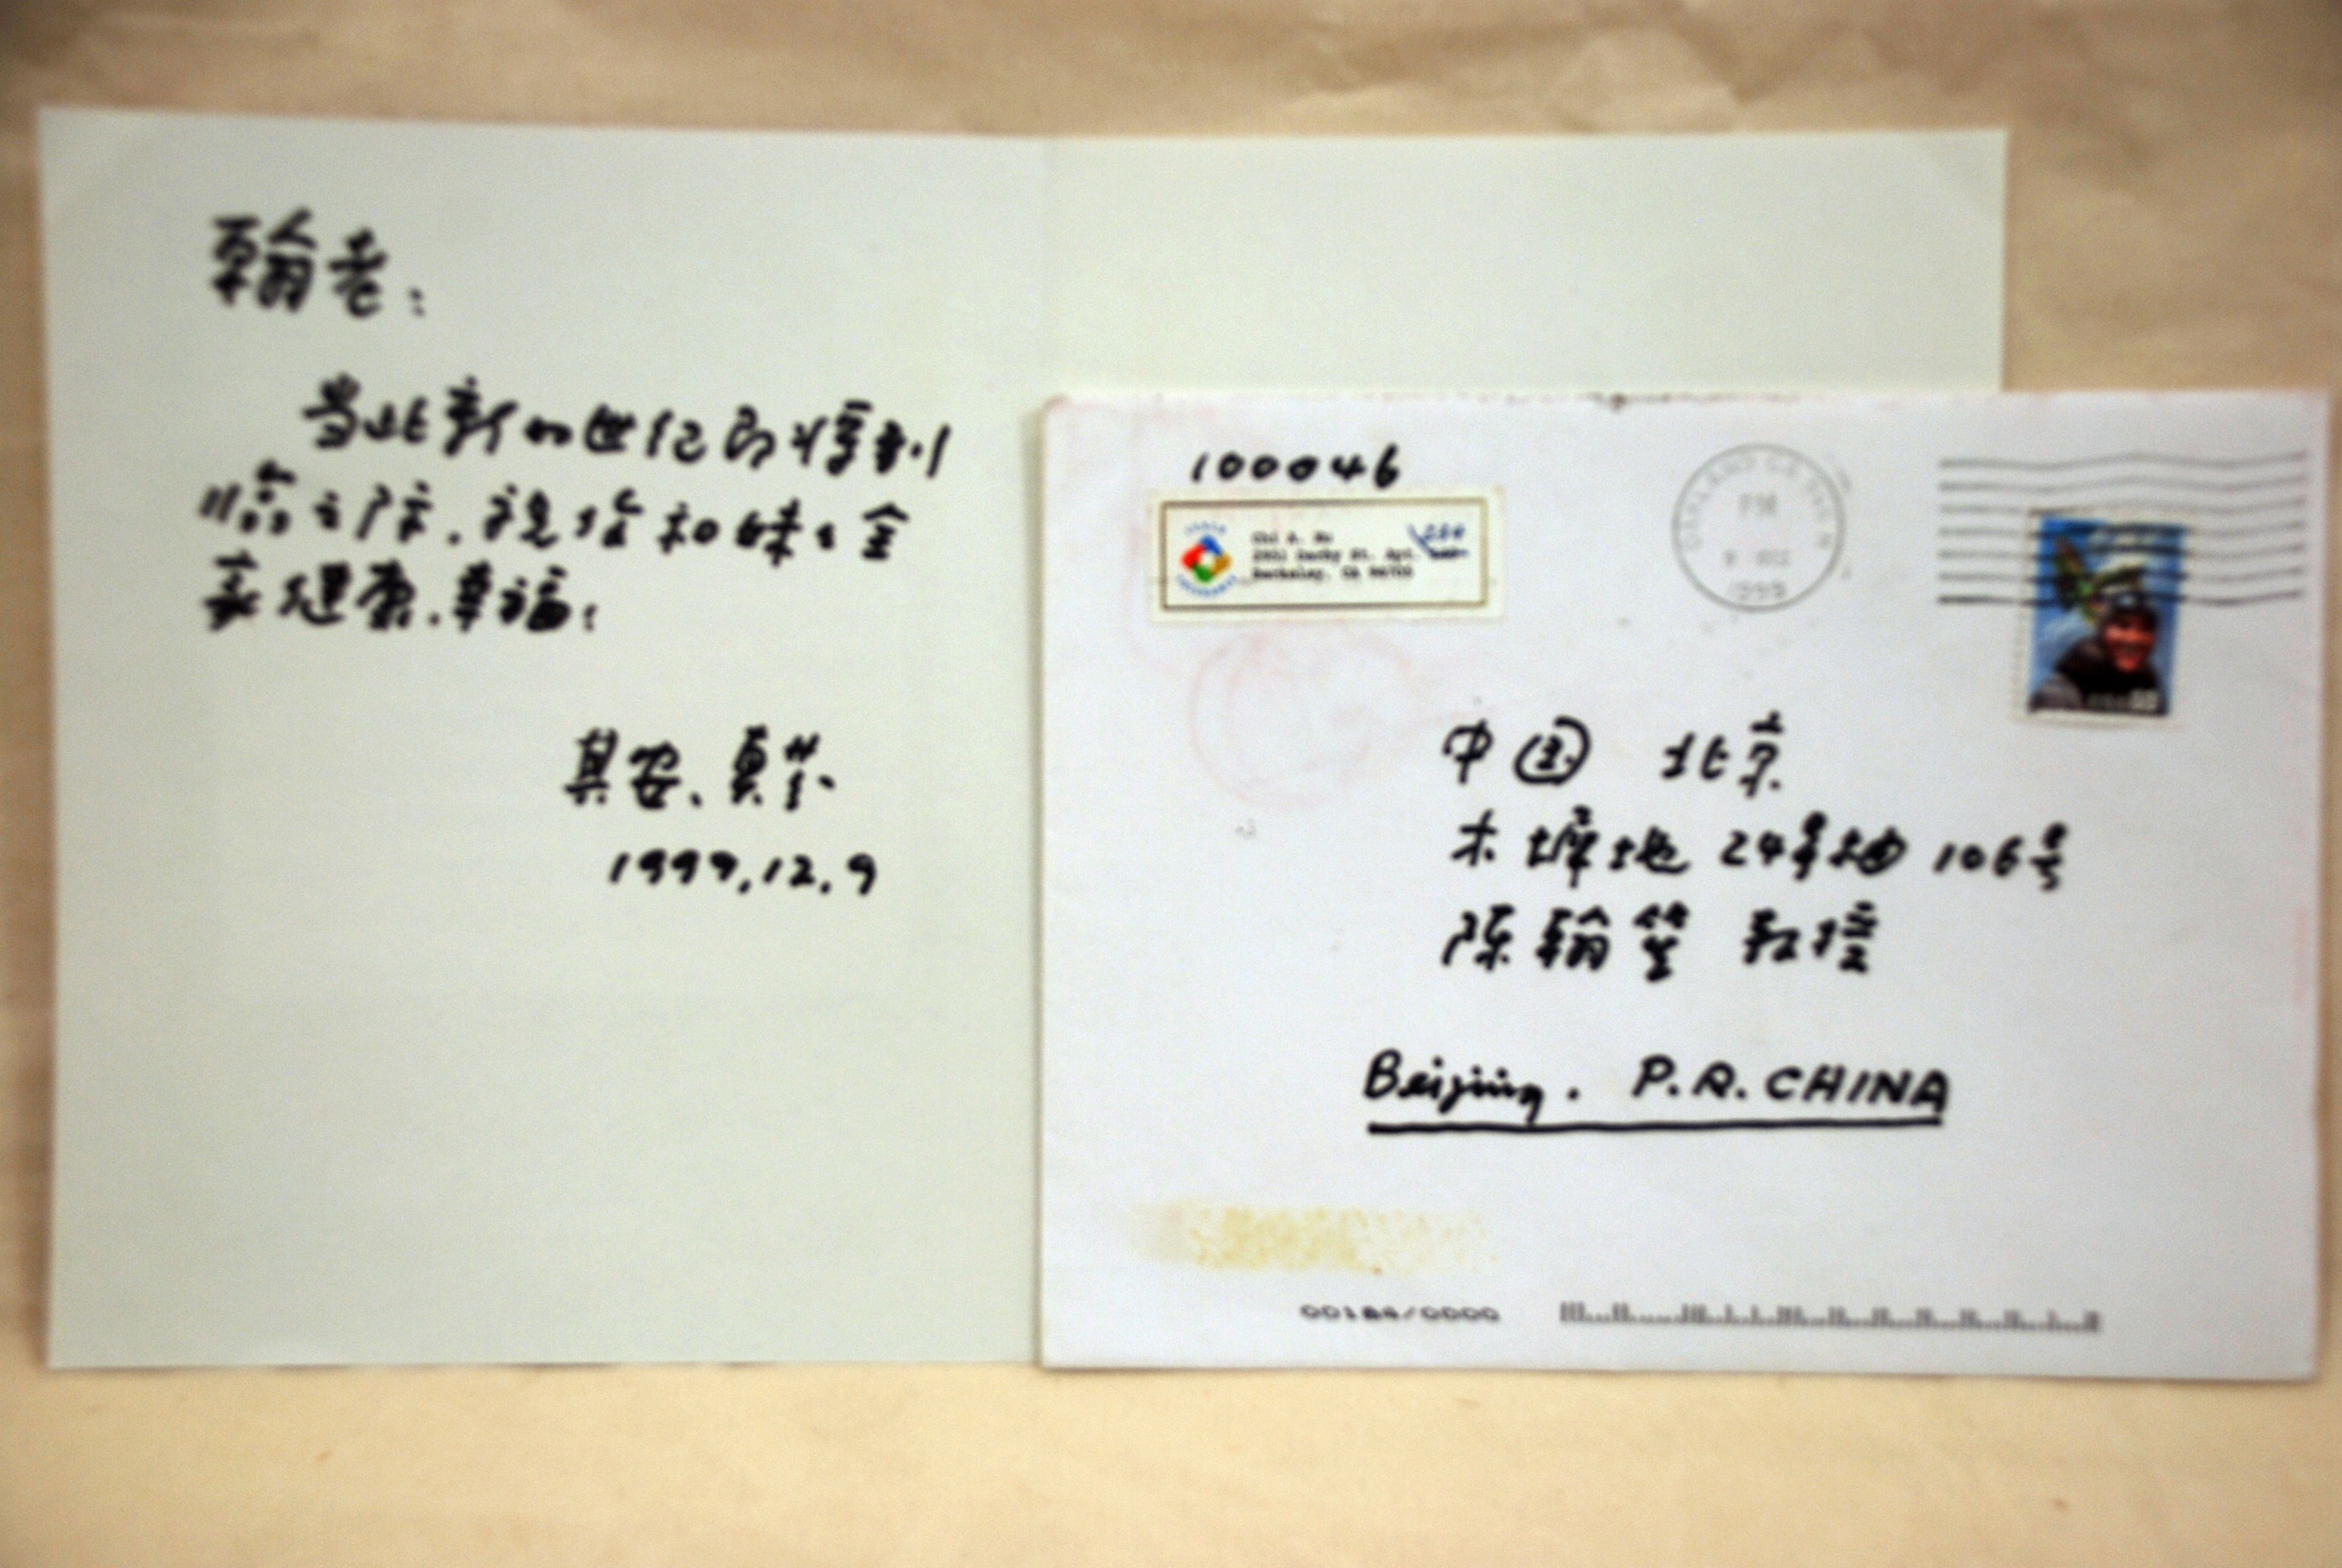 翰老：
当此新的世纪即将到
临之际，祝您和妹妹全
家健康、幸福！
其安、真
1999.12.9
100046
Chi A. Hu
Berkeley, CA
PM
9 DEC
1999
中国 北京
木墀地 24号楼 106号
陈翰笙 教授
Beijing. P.R. CHINA